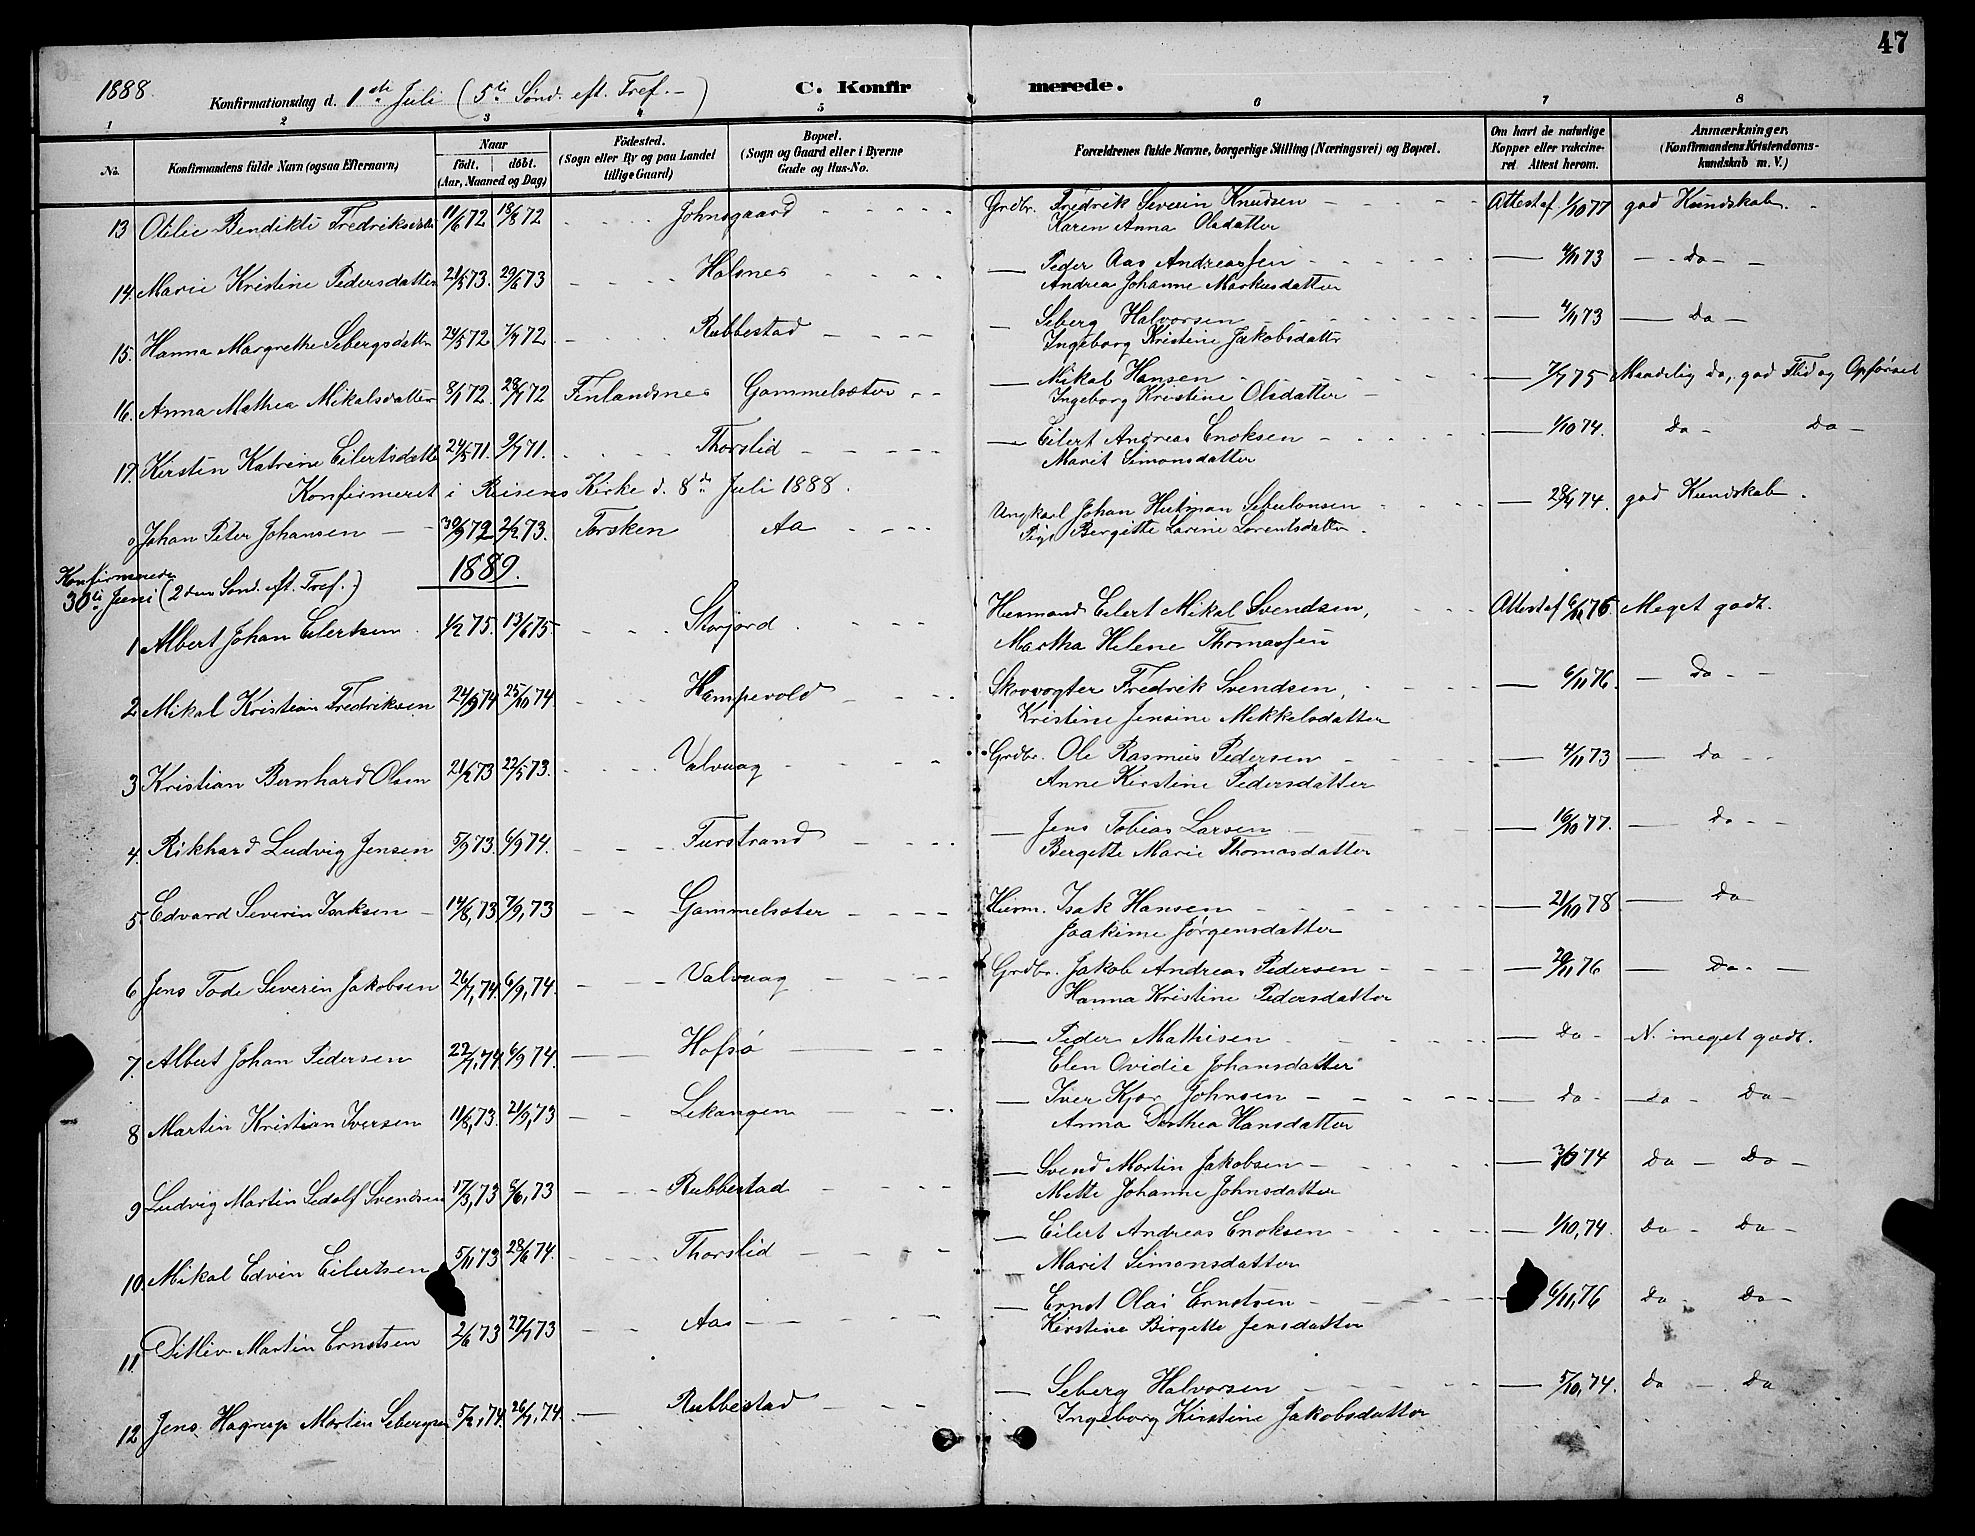 47
1888. Konfirmationsdag d. 1ste Juli (5te Sønd. eft. Tref. - ) C. Konfirmerede.
1 2 3 4 5 6 7 8
No. Konfirmandens fulde Navn (ogsaa Efternavn) Naar født. døbt. (Aar, Maaned og Dag) Fødested. (Sogn eller By og paa Landet tillige Gaard) Bopæl. (Sogn og Gaard eller i Byerne Gade og Hus-No. Forældrenes fulde Navne, borgerlige Stilling (Næringsvei) og Bopæl. Om havt de naturlige Kopper eller vaccineret Attest herom. Anmærkninger. (Konfirmandens Kristendomskundskab m. V.)
13 Otilie Bendikte Fredriksdatter 11/6 72 18/8 72 Johnsgaard Grdbr. Fredrik Severin Knudsen Attest af 1/10 77 god Kundskab.
Karen Anna Olsdatter
14. Marie Kristine Pedersdatter 21/5 73. 29/6 73 Holsnes — Peder Aas Andreassen — 4/11 73 — do —
Andrea Johanne Markusdatter
15. Hanna Margrethe Sebergsdatter 24/5 72 7/7 72 Rubbestad — Seberg Halvorsen — 4/11 73 — do —
Ingeborg Kristine Jakobsdattr
16. Anna Mathea Mikalsdatter 8/1 72. 28/7 72 Finlandsnes Gammelsæter — Mikal Hansen — 7/7 75 Maadelig do, god Flid og Opførsel
Ingeborg Kristine Olsdatter
17. Kirstin Katrine Eilertsdatter 24/5 71 9/7 71. Thorslid — Eilert Andreas Enoksen — 1/10 74. Do - Do -
Marit Simonsdatter
Konfirmeret i Reisens Kirke d. 8de Juli 1888.
Johan Peter Johansen — 30/9 72 2/2 73. Torsken Aa Ungkarl Johan Hutman Sebulonsen — 28/4 74. god Kundskab.
Pige Bergitte Larine Lorentsdatter
1889.
Konfirmerede
30te Juni (2den Sønd. eft. Tref.)
1 Albert Johan Eilertsen 1/2 75. 13/6 75. Storjord Husmand Eilert Mikal Svendsen, Attest af 6/11 76 Meget godt.
Martha Helene Thomassen
2 Mikal Kristian Fredriksen 24/9 74 25/10 74. Kampevold Skovvogter Fredrik Svendsen, — 6/11 76. — Do -
Kristine Jensine Mikkelsdatter
3 Kristian Bernhard Olsen 21/2 73 22/5 73. Valvaag Grdbr. Ole Rasmus Pedersen — 4/11 73 — do -
Anne Kirstine Pedersdatter
4. Rikhard Ludvig Jensen 5/9 73. 6/9 74. Furstrand — Jens Tobias Larsen — 16/10 77. — do -
Bergette Marie Thomasdatter
5 Edvard Severin Isaksen 14/8, 73 7/9, 73 Gammelsæter Huusm. Isak Hansen — 21/10 78 — do
Joakime Jørgensdatter
6 Jens Tode Severin Jakobsen 26/7, 74. 6/9, 74. Valvaag Grdbr. Jakob Andreas Pedersen — 29/11 76 — Do. —
Hanna Kristine Pedersdatter
7. Albert Johan Pedersen 22/7, 74. 6/9 74. Hofsø — Peder Mathisen — Do - N. meget godt.
Elen Ovidie Johansdatter
8 Martin Kristian Iversen 11/8, 73. 21/9, 73 Lekangen — Iver Kjær Johnsen — do - do - Do -
Anna Dorthea Hansdatter
9 Ludvig Martin Sedolf Svendsen 17/3, 73 8/6, 73 Rubbestad — Svend Martin Jakobsen — 3/10 74 Do - Do -
Mette Johanne Johnsdatter
10. Mikal Edvin Eilertsen 5/11 73 28/6 74. Thorslid — Eilert Andreas Enoksen — 1/10, 74. Do - Do -
Marit Simonsdatter
11 Ditlev Martin Ernstsen 2/6 73 27/7 73 Aas — Ernst Olai Ernstsen 6/11, 76 Do - Do -
Kirstine Birgette Jensdatter
12 Jens Hagrup Martin Sebergsen 5/2, 74. 26/7, 74. Rubbestad — Seberg Halvorsen — 5/10, 74. Do - Do
Ingeborg Kirstine Jakobsdatter